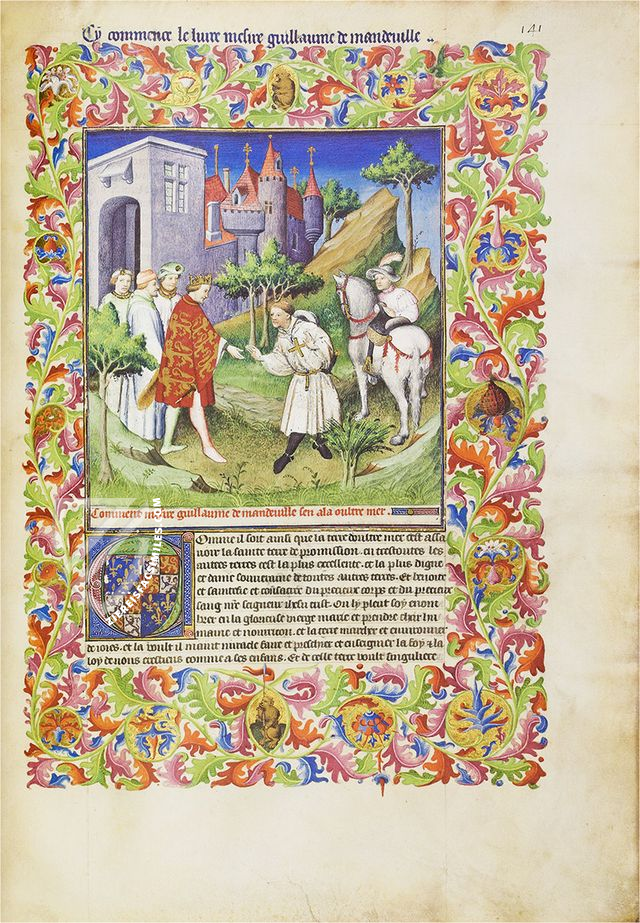 Cy commence le livre mesire guillaume de mandeville ..
141
Comment mesire guillaume de mandeville sen ala oultre mer.
Comme il soit ainsi que la terre doultre mer cest assa
uoir la sainte terre de promission. en tres toutes les
autres terres cest la plus excellente. et la plus digne
et dame souueraine de toutes autres terres. Et benoite
et saintefie et consacree du precieux corps et du precieux
sang nre seigneur ihesu crist. Ou ly pleut soy enom
brer en la glorieuse vierge marie et prendre char hu
maine et nourricon. et la terre marchier et enuironner
de ses. et la voult il maint miracle faire et preschier et enseignier la foy et la
loy de nous crestiens comme a ses enfans. Et de celle terre voult singuliere